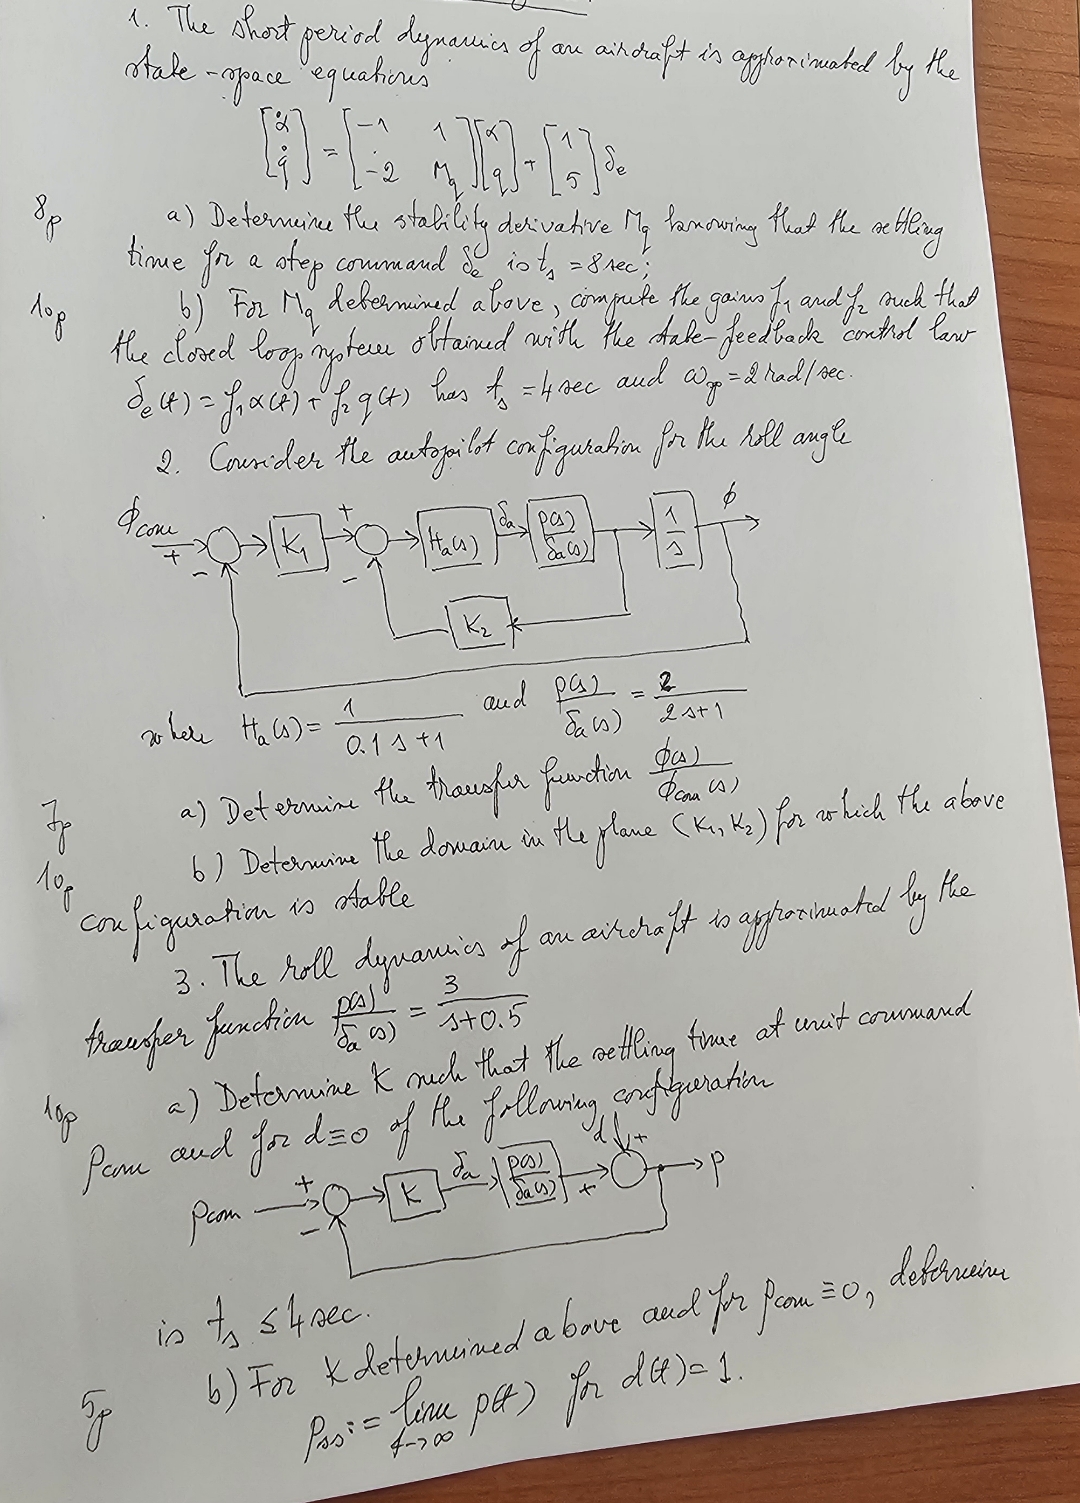 1. The short period dynamics of an aircraft is approximated by the
state-space equations
[α̇ q̇] = [-1 1 -2 Mq] [α q] + [1 5] δe
8p a) Determine the stability derivative Mq knowing that the settling
time for a step command δe is ts = 8 sec;
10p b) For Mq determined above, compute the gains f1 and f2 such that
the closed loop system obtained with the state-feedback control law
δe(t) = f1 α(t) + f2 q(t) has ts = 4 sec and ωsp = 2 rad/sec.
2. Consider the autopilot configuration for the roll angle
ϕcom + - K1 + - Ha(s) δa p(s)/δa(s) 1/s ϕ
K2
where Ha(s) = 1/(0.1s+1) and p(s)/δa(s) = 2/(2s+1)
7p a) Determine the transfer function ϕ(s)/ϕcom(s)
10p b) Determine the domain in the plane (K1, K2) for which the above
configuration is stable
3. The roll dynamics of an aircraft is approximated by the
transfer function p(s)/δa(s) = 3/(s+0.5)
10p a) Determine K such that the settling time at unit command
pcom and for d≡0 of the following configuration
pcom + - K δa p(s)/δa(s) + d + p
is ts ≤ 4 sec.
5p b) For K determined above and for pcom ≡ 0, determine
pss := lim t→∞ p(t) for d(t) = 1.